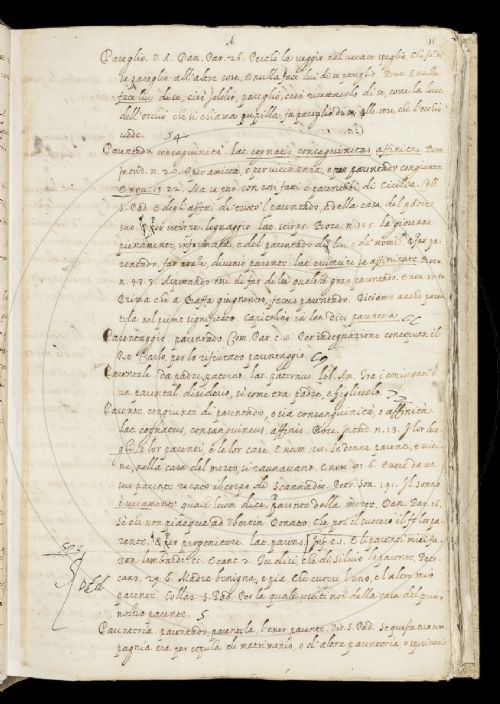 A
Pareglio. V. A. Dan. Par. 26. Perch'io la veggio nel verace speglio, Che fa di
se pareglio all'altre cose, E nulla face lui di se pareglio. But. E nulla
face lui di se, cioè Iddio, pareglio, cioè ricettacolo di se, come la luce
dell'occhio che si chiama pupilla, fa pareglio di se alle cose, che l'occhio
vede. 54
Parentado consaguinità lat. cognatio consanguinitas affinitas. Bocc.
Introd. n. 20. O per amistà, o per vicinanza, o per parentado congiunta
E nov. 22. Ma se per così fatti è parentadi di Cicilia. Coll.
S. Pad. E degli affetti di tutto 'l parentado, e della casa del padre
suo. § Per istirpe legnaggio lat. stirps. Bocc. n. 15. la giovane
pienamente informata, e del parentado di lui e de' nomi. § far pa-
rentado, far nozze, divenir parente lat. affinitate Bocc.
n. 47. 3. sperando di far di lei qualche gran parentado. E nov.
Prima che a Baffa giugnesser, fecero parentado. Diciamo anche paren-
tela nel primo significato. Capitolino in lat. dice parentela.
Parentaggio, parentado Com. Par. c. 10. Per indegnazione conceputa il
Re Carlo per lo rifiutato parentaggio. Co
Parentale da padre, paterno. lat. paternus. Lib. Am. Tra i coniugati è
un parental desiderio, sì come tra padre, e figliuolo.
Parente. congiunto di parentado, o sia consanguinità, o affinità.
lat. cognatus, consanguineus affinis. Bocc. Introd. n. 13. I lor luo-
ghi e lor parenti, e le lor case. E num. 20. Le donne parenti, e vici-
ne, nella casa del morto si raunavano E nov. 91. 6. E vede da un
suo parente recato il corpo di Scannadio Petr. Son. 191. Il sonno
è veramente qual'uom dice, parente della morte. Dan. Par. 16.
Sì che non piacque ad Ubertin Donato Che poi il suocero il fe' lor pa-
rente. § Per progenitore lat. parens. Inf. c. 1. E li parenti miei fu-
ron lombardi. E cant. 2. Tu dici, che di Silvio lo parente. Petr.
canz. 29. 6. Madre benigna, e pia Che cuopre l'uno, e l'altro mio
parente. Coll. S. Pad. Per la quale usciti noi della casa del primo
nostro parente. 5
505
Pad
Parenteria, parentado, parentela, l'esser parente. S. Pad. Se questa tua com-
pagnia era per copula di matrimonio, o d'altra parenteria, o spirituale